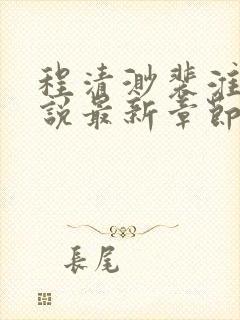 程清渺裴淮
說最新章節
長尾